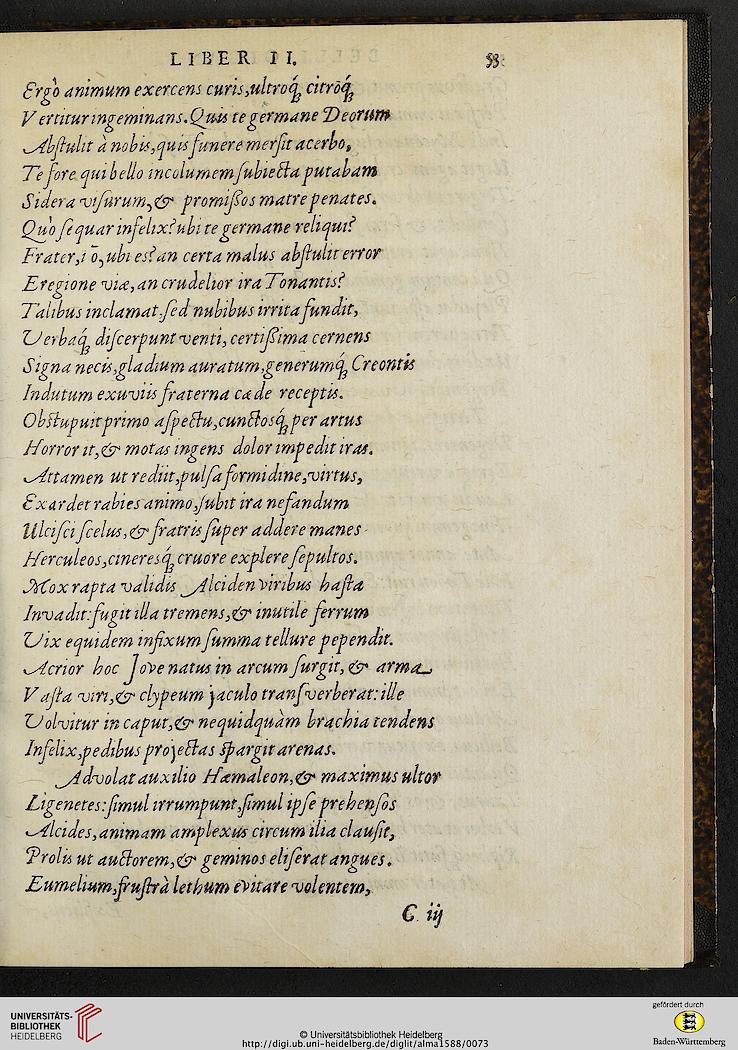 LIBER II. 33.
Ergò animum exercens curis,ultroq́; citròq́;
Vertitur ingeminans. Quis te germane Deorum
Abſtulit à nobis,quis funere merſit acerbo,
Te fore qui bello incolumem ſubiecta putabam
Sidera viſurum,& promiſſos matre penates.
Quò ſequar infelix? ubi te germane reliqui?
Frater, i ō, ubi es? an certa malus abſtulit error
E regione viæ, an crudelior ira Tonantis?
Talibus inclamat,ſed nubibus irrita fundit,
Verbaq́; diſcerpunt venti, certiſſima cernens
Signa necis,gladium auratum,generumq́; Creontis
Indutum exuviis fraterna cæde receptis.
Obſtupuit primo aſpectu,cunctosq́; per artus
Horror it,& motas ingens dolor impedit iras.
Attamen ut rediit,pulſa formidine,virtus,
Exardet rabies animo,ſubit ira nefandum
Ulciſci ſcelus,& fratris ſuper addere manes
Herculeos,cineresq́; cruore explere ſepultos.
Mox rapta validis Alciden viribus haſta
Invadit: fugit illa tremens,& inutile ferrum
Vix equidem infixum ſumma tellure pependit.
Acrior hoc Jove natus in arcum ſurgit, & arma
Vaſta viri,& clypeum jaculo tranſverberat: ille
Volvitur in caput,& nequidquàm brachia tendens
Infelix,pedibus projectas ſpargit arenas.
Advolat auxilio Hæmaleon,& maximus ultor
Ligenetes: ſimul irrumpunt,ſimul ipſe prehenſos
Alcides, animam amplexus circum ilia clauſit,
Prolis ut auctorem,& geminos eliſerat angues.
Eumelium,fruſtrà lethum evitare volentem,
C iij
UNIVERSITÄTS-
BIBLIOTHEK
HEIDELBERG
© Universitätsbibliothek Heidelberg
http://digi.ub.uni-heidelberg.de/diglit/alma1588/0073
gefördert durch
Baden-Württemberg